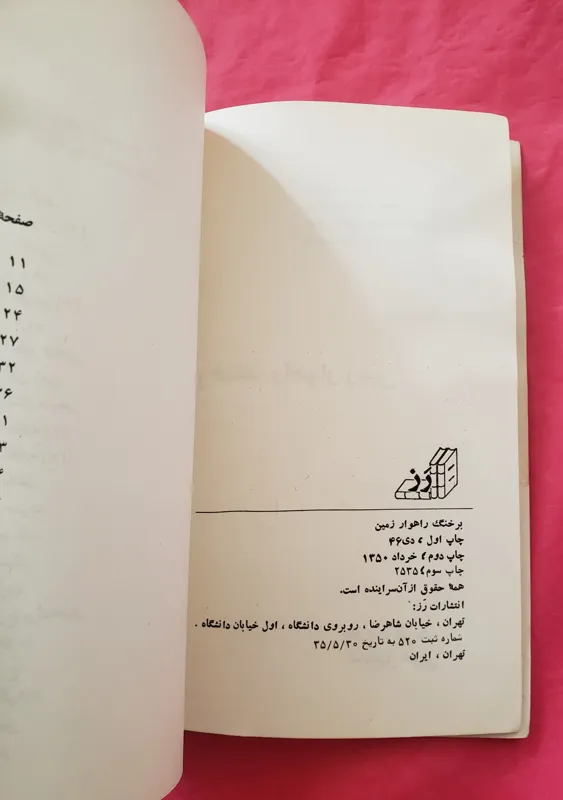 صفحه
۱۱
۱۵
۲۴
۲۷
۳۲
رَز
برخنگ راهوار زمین
چاپ اول ، دی۴۶
چاپ دوم ، خرداد ۱۳۵۰
چاپ سوم ، ۲۵۳۵
همه حقوق ازآن‌سراینده است.
انتشارات رَز:
تهران ، خیابان شاهرضا ، روبروی دانشگاه ، اول خیابان دانشگاه .
شماره ثبت ۵۲۰ به تاریخ ۳۵/۵/۳۰
تهران ، ایران